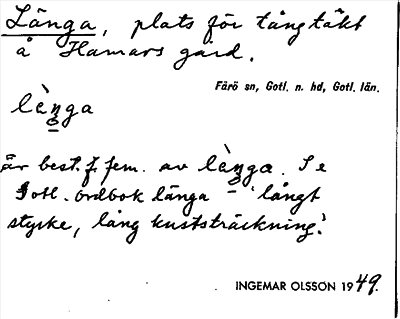 Länga, plats för tångtäkt
å Hamars gård.
Fårö sn, Gotl. n. hd, Gotl. län.
lèŋga
är best. f. fem. av lèŋga. Se
Gotl. ordbok länga - 'långt
stycke, lång kuststräckning'.
INGEMAR OLSSON 1949.